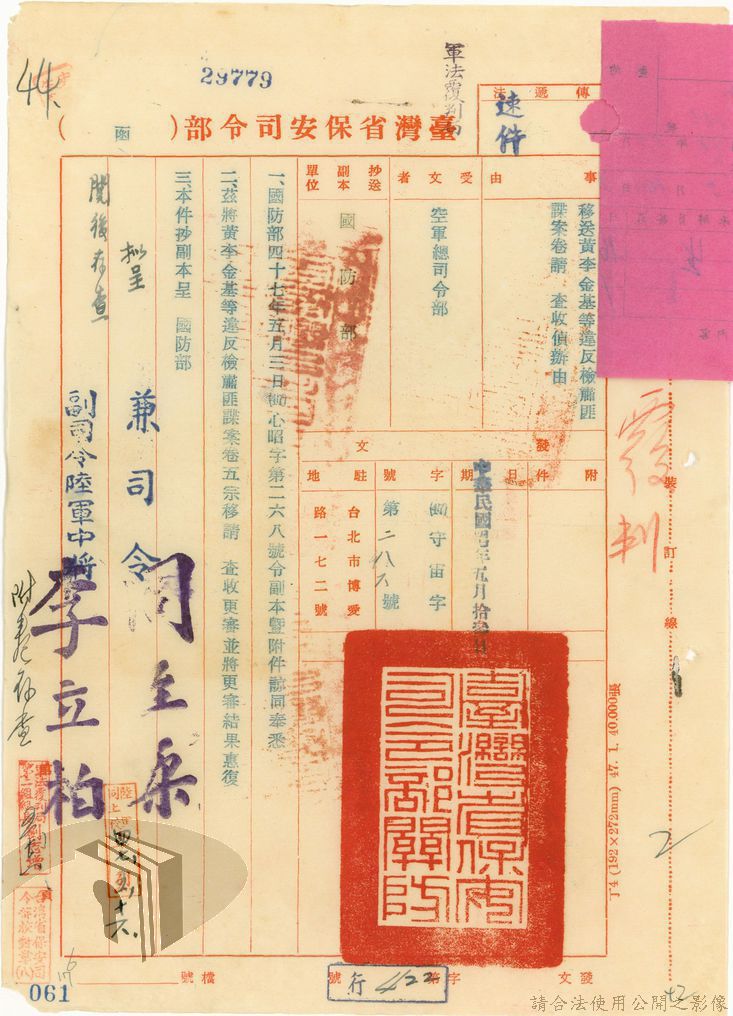 29779
軍法覆判局
臺灣省保安司令部(函)
傳遞法
速件
事由
移送黃李金基等違反檢肅匪
諜案卷請 查收偵辦由
受文者
空軍總司令部
抄送副本單位
國防部
發文
附件
日期
中華民國四七年五月拾叁日
字號
守宙字
第二八六號
駐地
台北市博愛
路一七二號
一、國防部四十七年五月三日心昭字第二六八號令副本暨附件諒同奉悉
二、茲將黃李金基等違反檢肅匪諜案卷五宗移請 查收更審並將更審結果惠復
三、本件抄副本呈 國防部
擬呈
閱後存查
兼司令
周至柔
副司令陸軍中將
李立柏
附卷存查
臺灣省保安司令部關防
覆判
裝訂線
T4(192×272mm) 47. 1. 40000張
檔號
發文 字第 號
行 422
061
請合法使用公開之影像